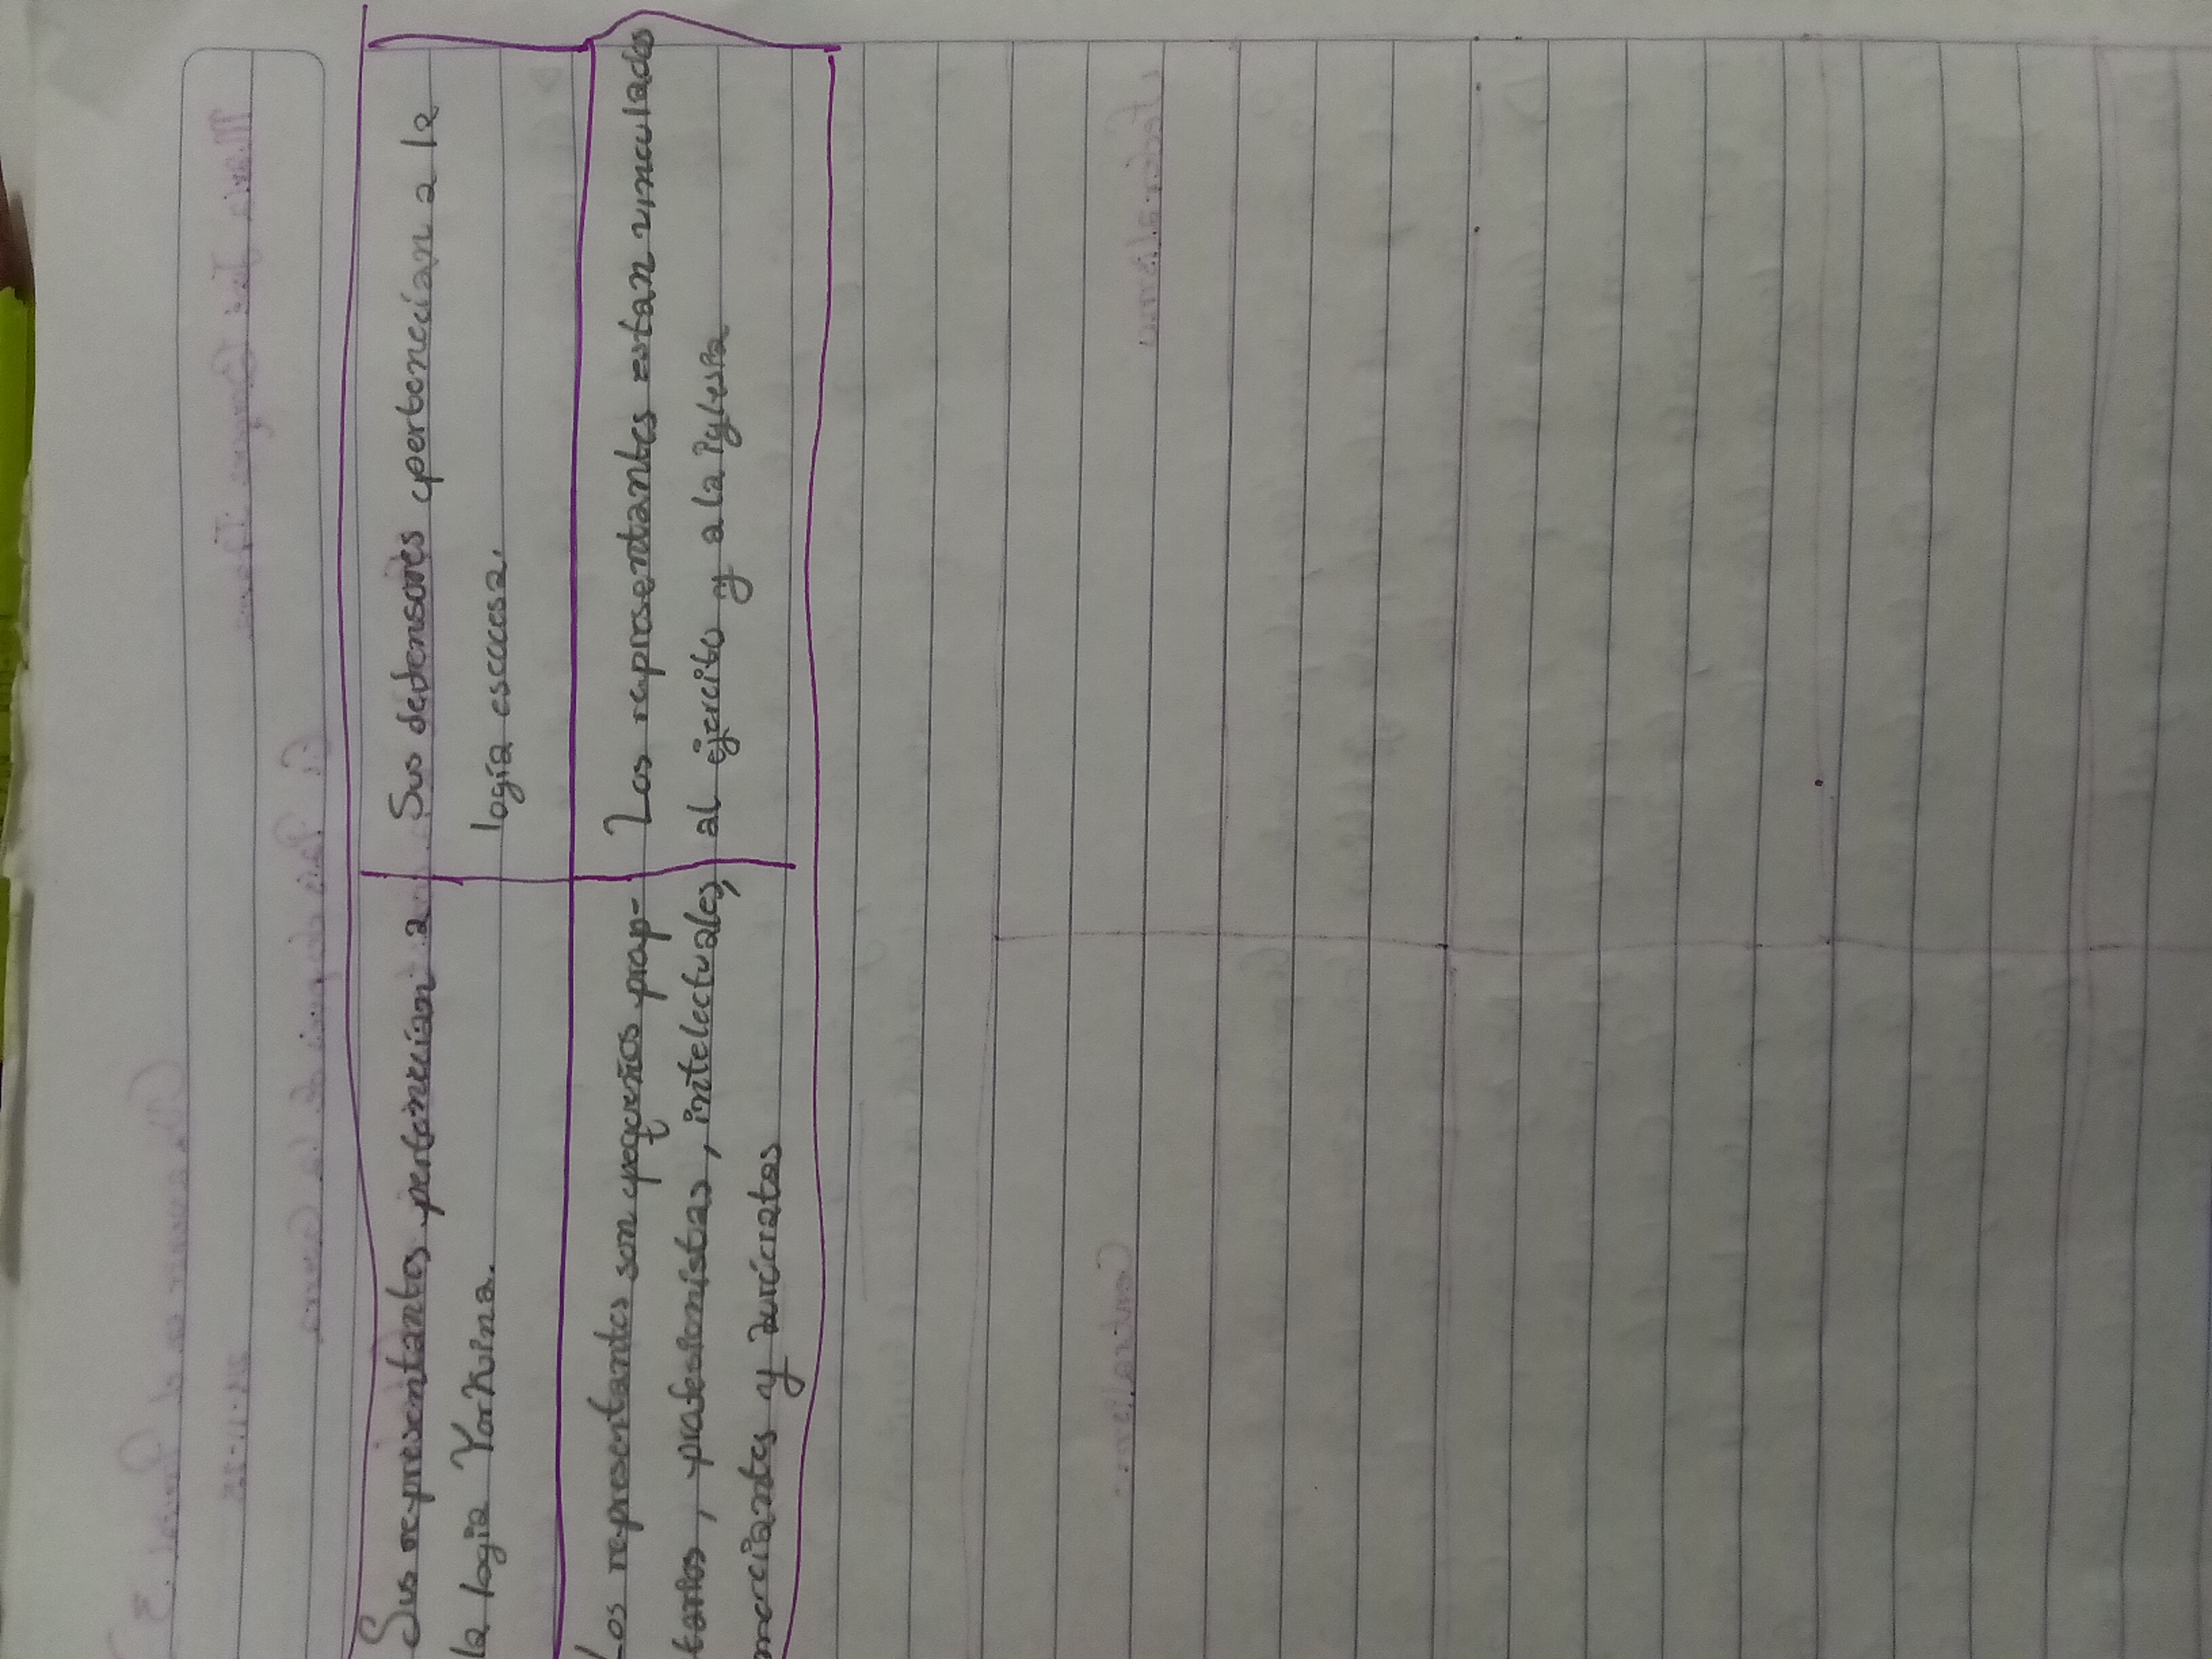 Sus representantes pertenecían a
la logia Yorkina.
Sus defensores pertenecían a la
logia escocesa.
Los representantes son pequeños prop-
tarios, profesionistas, intelectuales,
merciantes y burócratas
Los representantes estan vinculados
al ejercito y a la iglesia